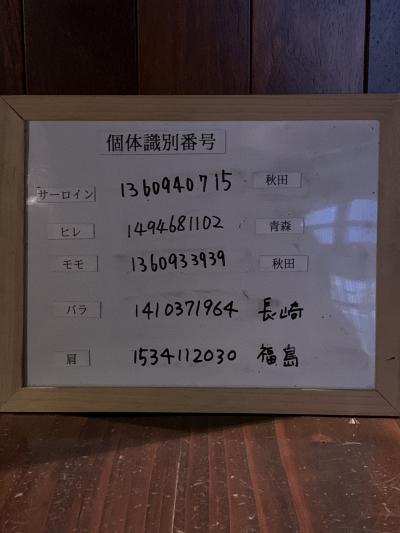 個体識別番号
サーロイン 1360940715 秋田
ヒレ 1494681102 青森
モモ 1360933939 秋田
バラ 1410371964 長崎
肩 1534112030 福島